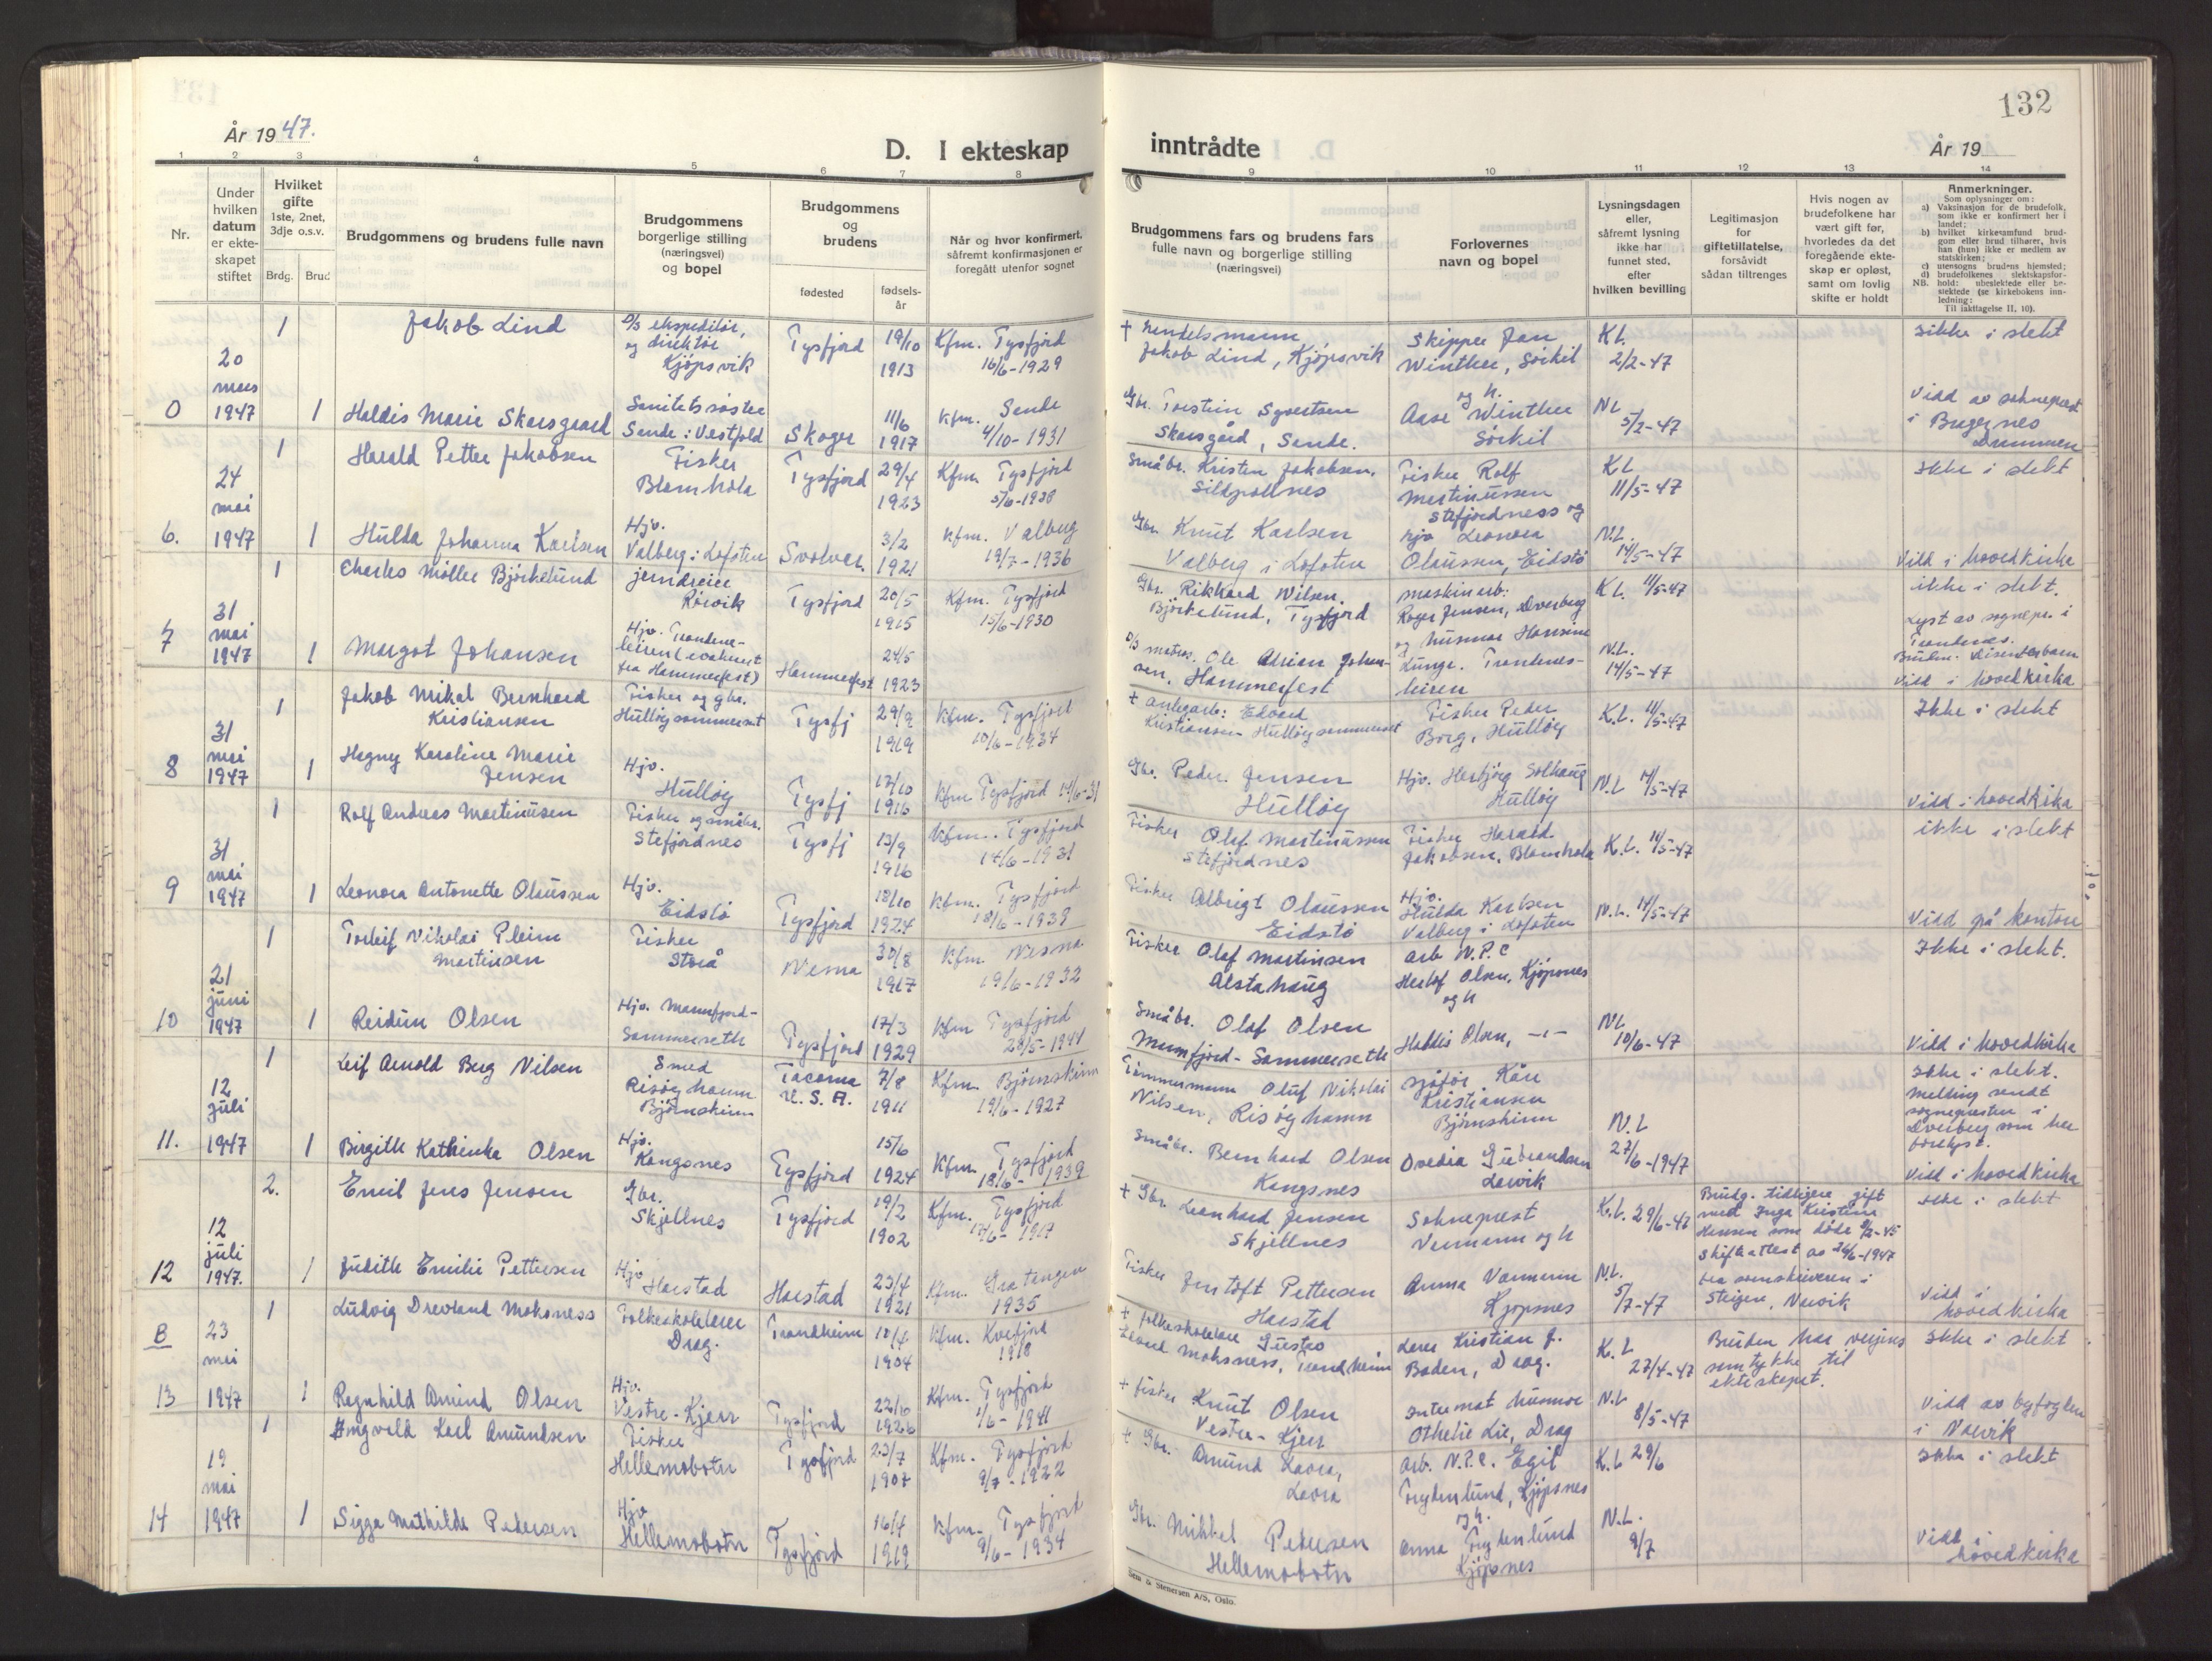 132
År 19 47.
D. I ekteskap inntrådte
År 19
1 2 3 4 5 6 7 8 9 10 11 12 13 14
Nr.
Under
hvilken
datum
er ekte-
skapet
stiftet
Hvilket
gifte
1ste, 2net,
3dje o.s.v.
Brdg. Brud
Brudgommens og brudens fulle navn
Brudgommens
borgerlige stilling
(næringsvei)
og bopel
Brudgommens
og
brudens
fødested
fødsels-
år
Når og hvor konfirmert,
såfremt konfirmasjonen er
foregått utenfor sognet
Brudgommens fars og brudens fars
fulle navn og borgerlige stilling
(næringsvei)
Forlovernes
navn og bopel
Lysningsdagen
eller,
såfremt lysning
ikke har
funnet sted,
efter
hvilken bevilling
Legitimasjon
for
giftetillatelse,
forsåvidt
sådan tiltrenges
Hvis nogen av
brudefolkene har
vært gift før,
hvorledes da det
foregående ekte-
skap er opløst,
samt om lovlig
skifte er holdt
Anmerkninger.
Som oplysninger om:
a) Vaksinasjon for de brudefolk,
som ikke er konfirmert her i
landet;
b) hvilket kirkesamfund brud-
gom eller brud tilhører, hvis
han (hun) ikke er medlem av
statskirken;
c) utensogns brudens hjemsted;
d) brudefolkenes slektskapsfor-
NB. hold: ubeslektede eller be-
slektede (se kirkebokens inn-
ledning:
Til iakttagelse II, 10).
0
20
mars
1947
1
Jakob Lind
D/S ekspeditør,
og direktør
Kjøpsvik
Tysfjord
19/10
1913
Kfm. Tysfjord
16/6-1929
+ Handelsmann
Jakob Lind, Kjøpsvik
Skipper Jan
Winther, Sørkil
og h.
K.L.
2/2-47
ikke i slekt
1
Haldis Marie Skarsgaard
Sanitetssøster
Sande i Vestfold
Skoger
11/6
1917
Kfm. Sande
4/10-1931
Gbr. Torstein Syvertsen
Skarsgård, Sande.
Aase Winther
Sørkil
NL
5/2-47
Viad av sokneprest
i Bragernes
Drammen
6.
24
mai
1947
1
Harald Petter Jakobsen
Fisker
Blomhola
Tysfjord
29/4
1923
Kfm. Tysfjord
5/6-1938
Småbr. Kristen Jakobsen.
Sildpollnes
Fisker Rolf
Martinussen
Stefjordness og
K.L
11/5-47
Ikke i slekt
1
Hulda Johanna Karlsen
Hjv.
Valberg i Lofoten
Svolvær.
3/2
1921
Kfm. Valberg
19/7-1936
Gbr. Knut Karlsen
Valberg i Lofoten
hjv Leonora
Olaussen, Eidstø
N.L.
14/5-47
Viad i hovedkirka
7
31
mai
1947
1
Charles Møller Bjørkelund
jerndreier
Rørvik
Tysfjord
20/5
1915
Kfm. Tysfjord
15/6-1930
Gbr. Rikhard Nilsen.
Bjørkelund, Tysfjord
maskinarb:
Roger Jensen, Dverberg
K.L. 11/5-47
ikke i slekt.
Lyst av sognepr. i
Trondenes.
1
Margot Johansen
Hjv. Trondenes-
leiren (evakuert
fra Hammerfest)
Hammerfest
24/5
1923
D/S matros. Ole Adrian Johan-
sen, Hammerfest
og husmor Hansine
Lunge. Trondenes-
leiren
N.L.
14/5-47
Bruden. Dissenterbarn
Viad i hovedkirka
8
31
mai
1947
1
Jakob Mikal Bernhard
Kristiansen
Fisker og gbr.
Hulløysommerset
Tysfj
29/9
1919
Kfm. Tysfjord
10/6-1934
+ anlegarb: Edvard
Kristiansen Hulløysommerset
Fisker Peder
Borg, Hulløy
K.L. 11/5-47
Ikke i slekt
1
Hagny Karoline Marie
Jensen
Hjv.
Hulløy
Tysfj
17/10
1916
Kfm Tysfjord 14/6-31
Gbr. Peder Jensen
Hulløy
Hjv. Herbjørg Solhaug
Hulløy
N.L 14/5-47
Viad i hovedkirka
9
31
mai
1947
1
Rolf Andreas Martinussen
Fisker og småbr.
Stefjordnes
Tysfj
13/9
1916
Kfm. Tysfjord
14/6-1931
Fisker Olaf Martinussen
Stefjordnes
Fisker Harald
Jakobsen, Blomhola
K.L. 14/5-47
ikke i slekt
1
Leonora Antonette Olaussen
Hjv.
Eidstø
Tysfjord
18/10
1924
Kfm. Tysfjord
18/6-1939
Fisker Albrigt Olaussen
Eidstø
Hjv.
Hulda Karlsen
Valberg i Lofoten
N.L. 14/5-47
Viad på kontoret
10
21
juni
1947
1
Torleif Nikolai Pleim
Martinsen
Fisker
Storå
Nesna
30/8
1917
Kfm. Nesna
19/6-1932
Fisker Olaf Martinsen
Alstahaug
arb N.P.C
Herlof Olsen, Kjøpsnes
og h
Ikke i slekt.
1
Reidun Olsen
Hjv. Mannfjord-
Sommerseth
Tysfjord
17/3
1929
Kfm Tysfjord
28/5-1944
Småbr. Olaf Olsen
Mannfjord-Sommerseth
Haldis Olsen, -"-
NL
10/6-47
Viad i hovedkirka
11.
12
Juli
1947
1
Leif Arnold Berg Nilsen
Smed
Risøyhamn
Bjørnskinn
Tacoma
U.S.A.
7/8
1911
Kfm. Bjørnskinn
19/6-1927
Tømmermann Oluf Nikolai
Nilsen, Risøyhamn
sjåfør Kåre
Kristiansen
Bjørnskinn
Ikke i slekt.
Melding sendt
sognepresten i
Dverberg som har
forelyst.
1
Birgitte Kathinka Olsen
Hjv.
Kongsnes
Tysfjord
15/6
1924
Kfm. Tysfjord
18/6-1939
Småbr. Bernhard Olsen
Kongsnes
Ovedia Gudbrandsen
Leivik
N.L
27/6-1947
Viad i hovedkirka
12
12
juli
1947.
2.
Emil Jens Jensen
Gbr.
Skjellnes
Tysfjord
19/2
1902
Kfm. Tysfjord
17/6-1917
+ Gbr. Leonhard Jensen
Skjellnes
Sokneprest
Varmann og h
K.L. 29/6-47
Brudg. tidligere gift
med Inga Kristine
Hansen som døde 9/2-45
Skifteattest av 26/6-1947
fra sorenskriveren i
Steigen, Nervik
Ikke i slekt
1
Judith Emilie Pettersen
Hjv
Harstad
Harstad
23/4
1921
Kfm. Gratangen
1935
Fisker Jentoft Pettersen
Harstad
Anna Varmann
Kjøpsnes
N.L.
5/7-47
Viad i
hovedkirka
B
13
23
mai
1947
1
Ludvig Drevland Moksness
Folkeskolelærer
Drag.
Trondheim
10/4
1904
Kfm. Kvefjord
1918
+ folkeskolelærer Gustav
Leonl Moksness, Trondheim
Lærer Kristian J.
Boden, Drag.
K.L
27/4-47
Bruden har verjens
samtykke til
ekteskapet.
Ikke i slekt
1
Ragnhild Amund Olsen
Hjv.
Vestre-Kjerr
Tysfjord
22/10
1926
Kfm. Tysfjord
1/6-1941
+ fisker Knut Olsen
Vestre-Kjerr
internat husmor
Othelie Lie, Drag
N.L
8/5-47
Viad av byfogden
i Narvik
14
19
mai
1947
1
Ingvald Karl Amundsen
Fisker
Hellemobotn
Tysfjord
23/7
1907
Kfm. Tysfjord
9/7-1922
+ Gbr. Amund Leora,
Leora
arb. N.P.C. Egil
Frydenlund, Kjøpsnes
og h.
K.L 29/6
Ikke i slekt
1
Sigga Mathilde Pedersen
Hjv
Hellemobotn
Tysfjord
16/4
1919
Kfm. Tysfjord
9/6-1934
Gbr. Mikkel Pedersen
Hellemobotn
Anna Frydenlund
Kjøpsnes
N.L.
9/7
Viad i
hovedkirka
Sem & Stenersen A/S, Oslo.